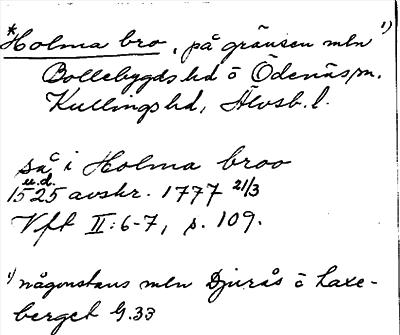 *Holma bro, på gränsen mln ¹)
Bollebygds hd o Ödenäs, sn.
Kullings hd, Älvsb. l.
så i Holma broo
u.d.
1525 avskr. 1777 21/3
Vft II:6-7, s. 109.
¹) någonstans mln Djurås o Laxe-
berget G.33